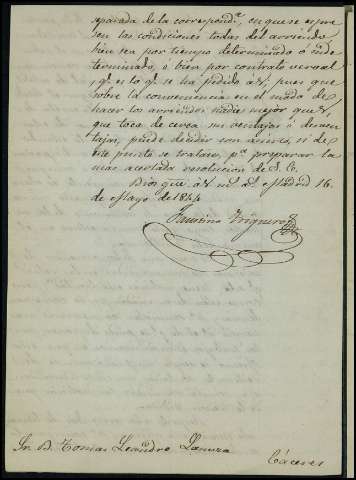 separada de la correspond.ª, en que se espre-
sen las condiciones todas del arriendo
bien sea por tiempo determinado ó inde-
terminado, ó bien por contrato verval
q.e es lo q.e se ha pedido á V., pues que
sobre la conveniencia en el modo de
hacer los arriendos nadie mejor que V.,
que toca de cerca sus ventajas ó desven-
tajas, puede decidir con acierto, si de
este punto se tratase, p.ª preparar la
mas acertada resolucion de S. E.
Dios gue. á V. m.s a.s Madrid 16.
de Mayo de 1844
Faustino Trigueros
Sr. D. Tomas Leandro
Cáceres